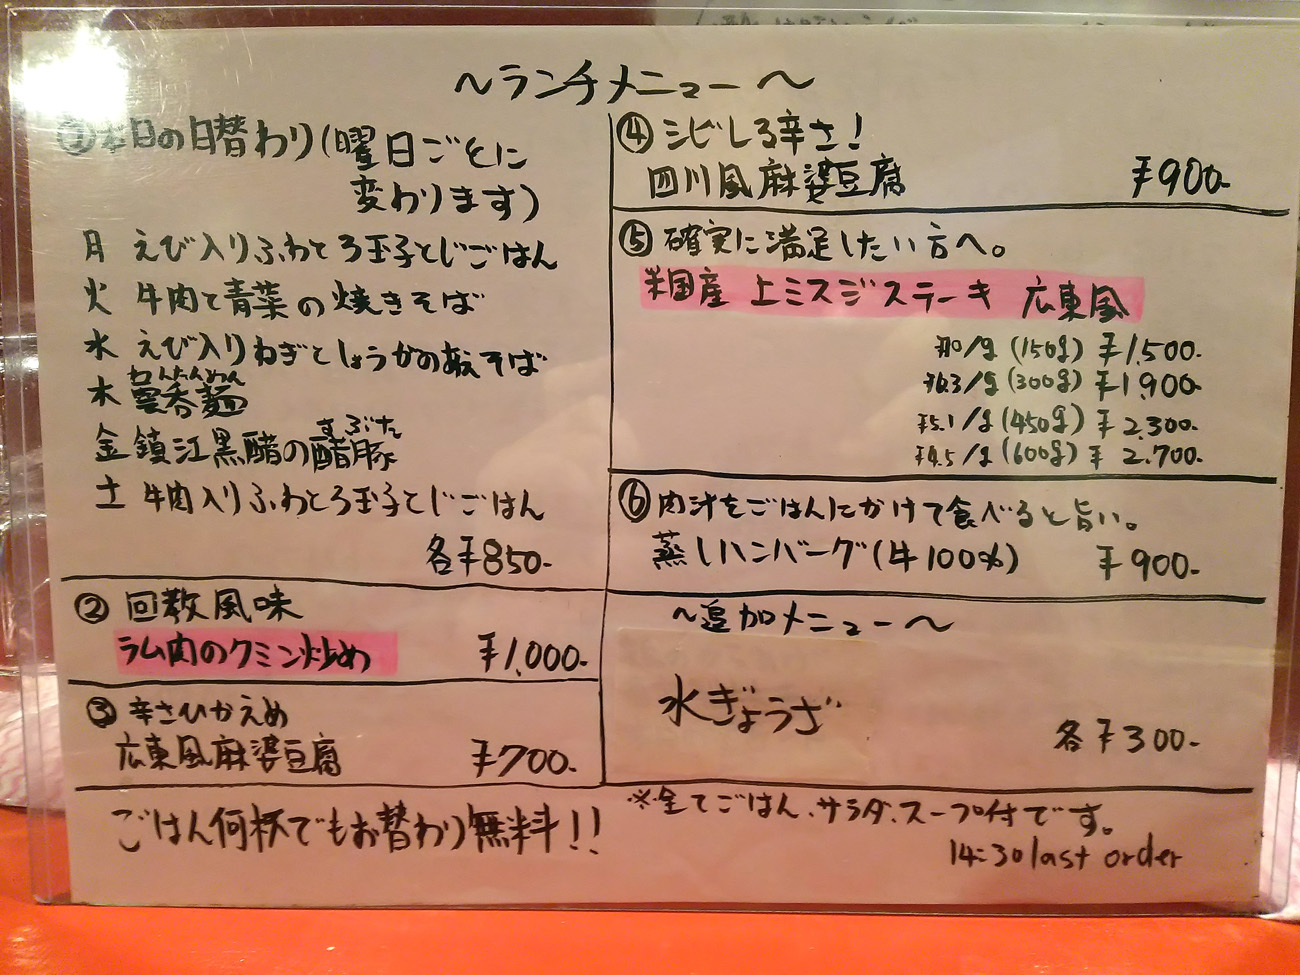 ～ランチメニュー～
①本日の日替わり(曜日ごとに
変わります)
月 えび入りふわとろ玉子とじごはん
火 牛肉と青菜の焼きそば
水 えび入りねぎとしょうがの和えそば
わんたんめん
木 雲呑麺
すぶた
金 鎮江黒醋の醋豚
土 牛肉入りふわとろ玉子とじごはん
各¥850-
② 回教風味
ラム肉のクミン炒め ¥1,000-
③ 辛さひかえめ
広東風麻婆豆腐 ¥700-
ごはん何杯でもお替わり無料!!
④ シビレる辛さ!
四川風麻婆豆腐 ¥900-
⑤ 確実に満足したい方へ。
米国産 上ミスジステーキ 広東風
¥10/g (150g) ¥1,500-
¥6.3/g (300g) ¥1,900-
¥5.1/g (450g) ¥2,300-
¥4.5/g (600g) ¥2,700-
⑥ 肉汁をごはんにかけて食べると旨い。
蒸しハンバーグ(牛100%) ¥900-
～追加メニュー～
水ぎょうざ
各¥300-
※全てごはん、サラダ、スープ付です。
14:30 last order